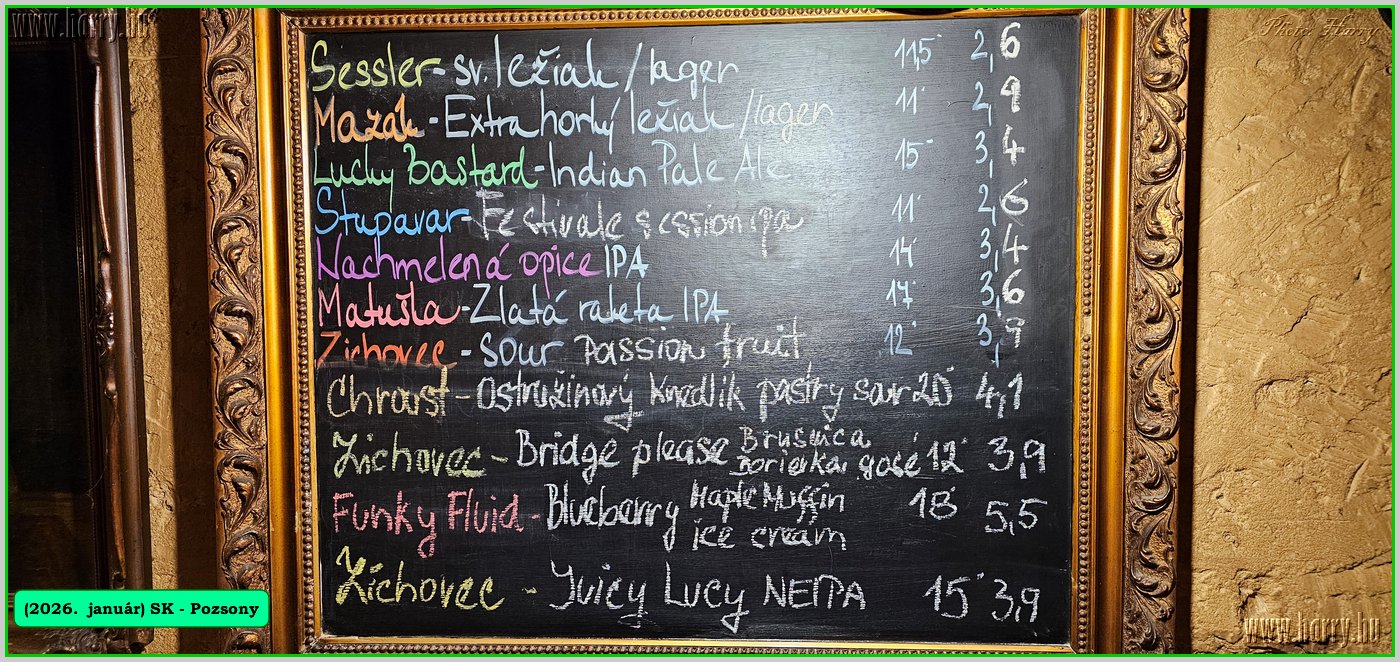 www.harry.hu
Photo: Harry
Sessler - sv. ležiak / lager 11,5° 2,6
Mazák - Extra horký ležiak / lager 11° 2,9
Lucky Bastard - Indian Pale Ale 15° 3,4
Stupavar - Festivale session ipa 11° 2,6
Nachmelená opice IPA 14° 3,4
Matuška - Zlatá raketa IPA 17° 3,6
Zichovec - Sour Passion fruit 12° 3,9
Chroust - Ostružinový knedlík pastry sour 20° 4,1
Zichovec - Bridge please Brusnica Borievka gosé 12° 3,9
Funky Fluid - Blueberry Maple Muffin ice cream 18° 5,5
Zichovec - Juicy Lucy NEIPA 15° 3,9
(2026. január) SK - Pozsony
www.harry.hu